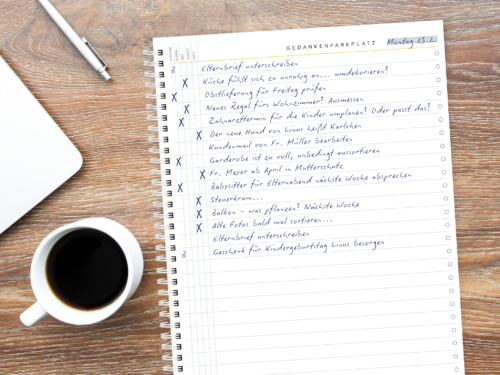 GEDANKENPARKPLATZ Montag 23.2.
Elternbrief unterschreiben
Küche fühlt sich zu unruhig an... umdekorieren?
Obstlieferung für Freitag prüfen
Neues Regal fürs Wohnzimmer? Ausmessen
Zahnarzttermin für die Kinder umplanen? Oder passt das?
Der neue Hund von Linus heißt Karlchen
Kundenmail von Fr. Müller bearbeiten
Garderobe ist zu voll, unbedingt aussortieren
Fr. Meyer ab April in Mutterschutz
Babysitter für Elternabend nächste Woche absprechen
Steuerkram...
Balkon - was pflanzen? Nächste Woche
Alte Fotos bald mal sortieren...
Elternbrief unterschreiben
Geschenk für Kindergeburtstag Linus besorgen